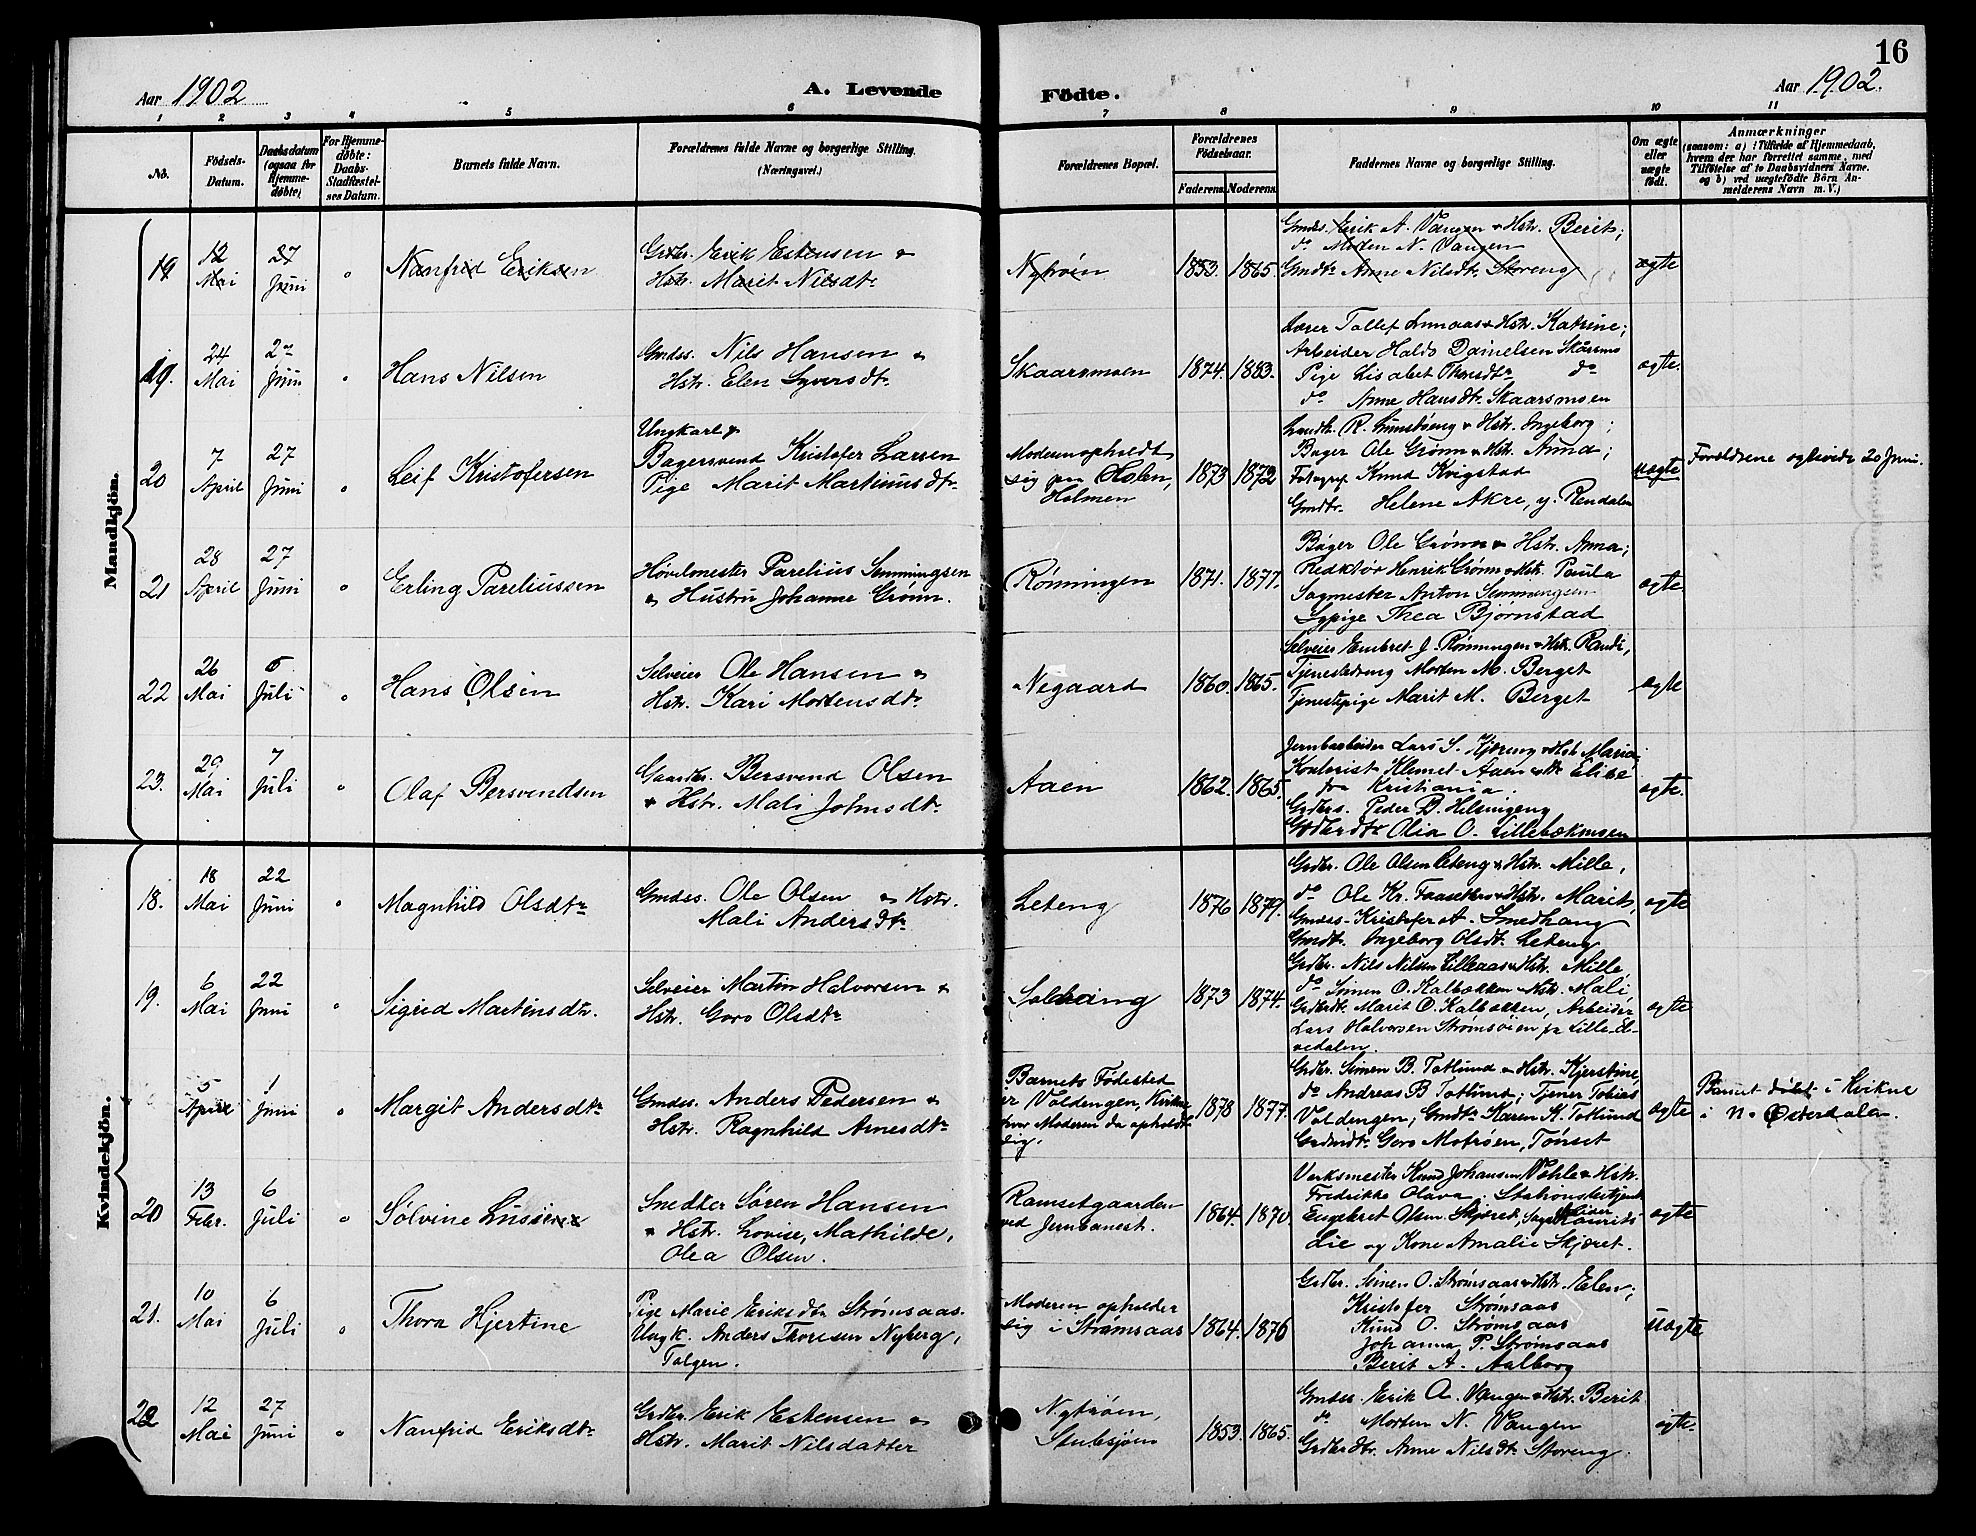 16
Aar 1902 A. Levende Födte. Aar 1902.
1 2 3 4 5 6 7 8 9 10 11
No.
Fødsels-
Datum.
Daabsdatum
(ogsaa for
Hjemme-
døbte).
For Hjemme-
døbte:
Daabs-
Stadfæstel-
ses Datum.
Barnets fulde Navn.
Forældrenes fulde Navne og borgerlige Stilling.
(Næringsvei.)
Forældrenes Bopæl.
Forældrenes
Fødselsaar.
Faderens. Moderens.
Faddernes Navne og borgerlige Stilling.
Om ægte
eller
uægte
født.
Anmærkninger
(saasom: a) i Tilfælde af Hjemmedaab,
hvem der har forrettet samme, med
Tilføielse af to Daabsvidners Navne.
og b) ved uægtefødte Börn An-
melderens Navn m. V.)
Mandkjön.
19
12
Mai
27
Juni
"
Nanfrid Eriksen
Grdbr. Erik Estensen &
Hstr. Marit Nilsdtr
Nytrøen
1853. 1865.
Gmds. Erik A. Vangen & Hstr. Berit;
do Morten N. Vangen
Gmdtr Anne Nilsdtr. Storeng
ægte
19.
24
Mai
27
Juni
"
Hans Nilsen
Gmdss. Nils Hansen &
Hstr. Elen Syversdtr.
Skaarsmoen
1874. 1883.
Lærer Tollef Lunaas & Hstr. Katrine;
Arbeider Haldo Danielsen Skårsmo
Pige Lisabet do
do Anne Hansdtr. Skaarsmoen
ægte.
20
7
April
27
Juni
"
Leif Kristofersen
Ungkarl &
Bagersvend Kristofer Larsen
Pige Marit Martinusdtr.
Moderen opholdt
sig paa Holen,
Holmen
1873 1872
Landh. R. & Hstr. Ingeborg;
Bager Ole Grønn & Hstr. Anna;
Fotograf Knud Kvigstad
Gmdtr. Helene Akre, y. Rendalen
uægte
Forældrene ægteviede 20 Juni.
21
28
April
27
Juni
"
Erling Pareliussen
Høvelmester Parelius Semmingsen
& Hustru Johanne Grønn.
Rønningen
1871. 1877.
Bager Ole Grønn & Hstr. Anna;
Redaktør Henrik Grønn & Hstr. Paula
Sagmester Anton Semmingsen
Sypige Thea Bjørnstad
ægte.
22
26
Mai
6
Juli
"
Hans Olsen
Selveier Ole Hansen &
Hstr. Kari Mortensdtr.
Negaard
1860. 1865.
Selveier Embret J. Rønningen & Hstr. Randi,
Tjenestedreng Morten M. Berget
Tjenestepige Marit M. Berget
ægte
23.
29
Mai
7
Juli
"
Olaf Bersvendsen
Gaardbr. Bersvend Olsen
& Hstr. Mali Johnsdtr.
Aaen
1862. 1865.
Jernbarbeider Lars S. Kjæreng & Hstr Maria;
Kontorist Klemet Aaen & Elise
fra Kristiania.
Grdbrs. Peder B. Helsingeng
Grdbrdtr Olia O. Lillebækmoen
ægte.
Kvindekjön.
18.
18
Mai
22
Juni
"
Magnhild Olsdtr
Gmdss. Ole Olsen & Hstr.
Mali Andersdtr.
Leteng
1876 1879.
Grdbr. Ole Olsen Leteng & Hstr. Mille,
do Ole Kr. & Hstr. Marit,
Gmdss. Kristofer A. Smedhaug
Gmdtr. Ingeborg Olsdtr. Leteng
ægte
19.
6
Mai
22
Juni
"
Sigrid Martinsdtr.
Selveier Martin Halvorsen &
Hstr. Goro Olsdtr
Solhaug
1873 1874.
Grdbr. Nils Nilsen Lilleaas & Hstr. Mille,
do Simen O. Kalbækken & Hstr. Mali,
Grdbrdtr. Marit O. Kalbækken, Arbeider
Lars Halvorsen Strømsøien fra Lille-El-
vedalen.
ægte
5
April
1
Juni
"
Margit Andersdtr
Gmdss. Anders Pedersen &
Hstr. Ragnhild Arnesdtr
Barnets Fødested
er Voldengen, Kvikne,
hvor Moderen da opholdt
sig.
1878 1877.
Grdbr. Simen B. Totlund & Hstr. Kjerstine,
do Andreas B Totlund; Tjener Tobias
Voldengen, Gmdtr Karen K. Totlund
Goro Motrøen, Tønset
ægte
Barnet døbt i Kvikne
i N. Østerdalen.
20
13
Febr.
6
Juli
"
Sølvine
Smedker Søren Hansen
& Hstr. Lovise, Mathilde,
Olea Olsen.
Ramsetgaarden
ved Jernbanest.
1864. 1870.
Verksmester Knud Johansen Vehle & Hstr.
Fredrikke Olava. Stationsbetjent
Engebret Olsen Skjæret, Laurits
Lie og Kone Amalie Skjæret.
ægte
21.
10
Mai
6
Juli
"
Thora Hjertine
Pige Marie Eriksdtr Strømsaas.
Ungk. Anders Thoresen Nyberg,
Tolgen.
Moderen opholder
sig i Strømsaas
1864. 1876
Grdbr. Simen O. Strømsaas & Hstr. Elen;
Kristofer Strømsaas
Knud O. Strømsaas
Johanna P. Strømsaas
Berit A. Aalborg
uægte
22
12
Mai
27
Juni
"
Nanfrid Eriksdtr
Grdbr. Erik Estensen &
Hstr. Marit Nilsdatter
Nytrøen,
Stubsjøen
1853. 1865.
Gmdss. Erik A. Vangen & Hstr. Berit
do Morten N. Vangen
Grdbrdtr. Anne Nilsdtr Storeng.
ægte.